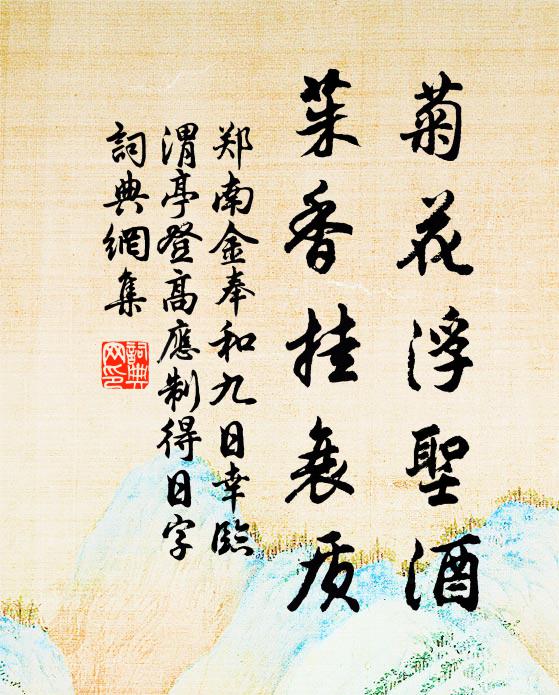 菊花浮聖酒
茱香挂衰质
郑南金奉和九日幸臨
渭亭登高應制得日字
詞典網集
詞典网印